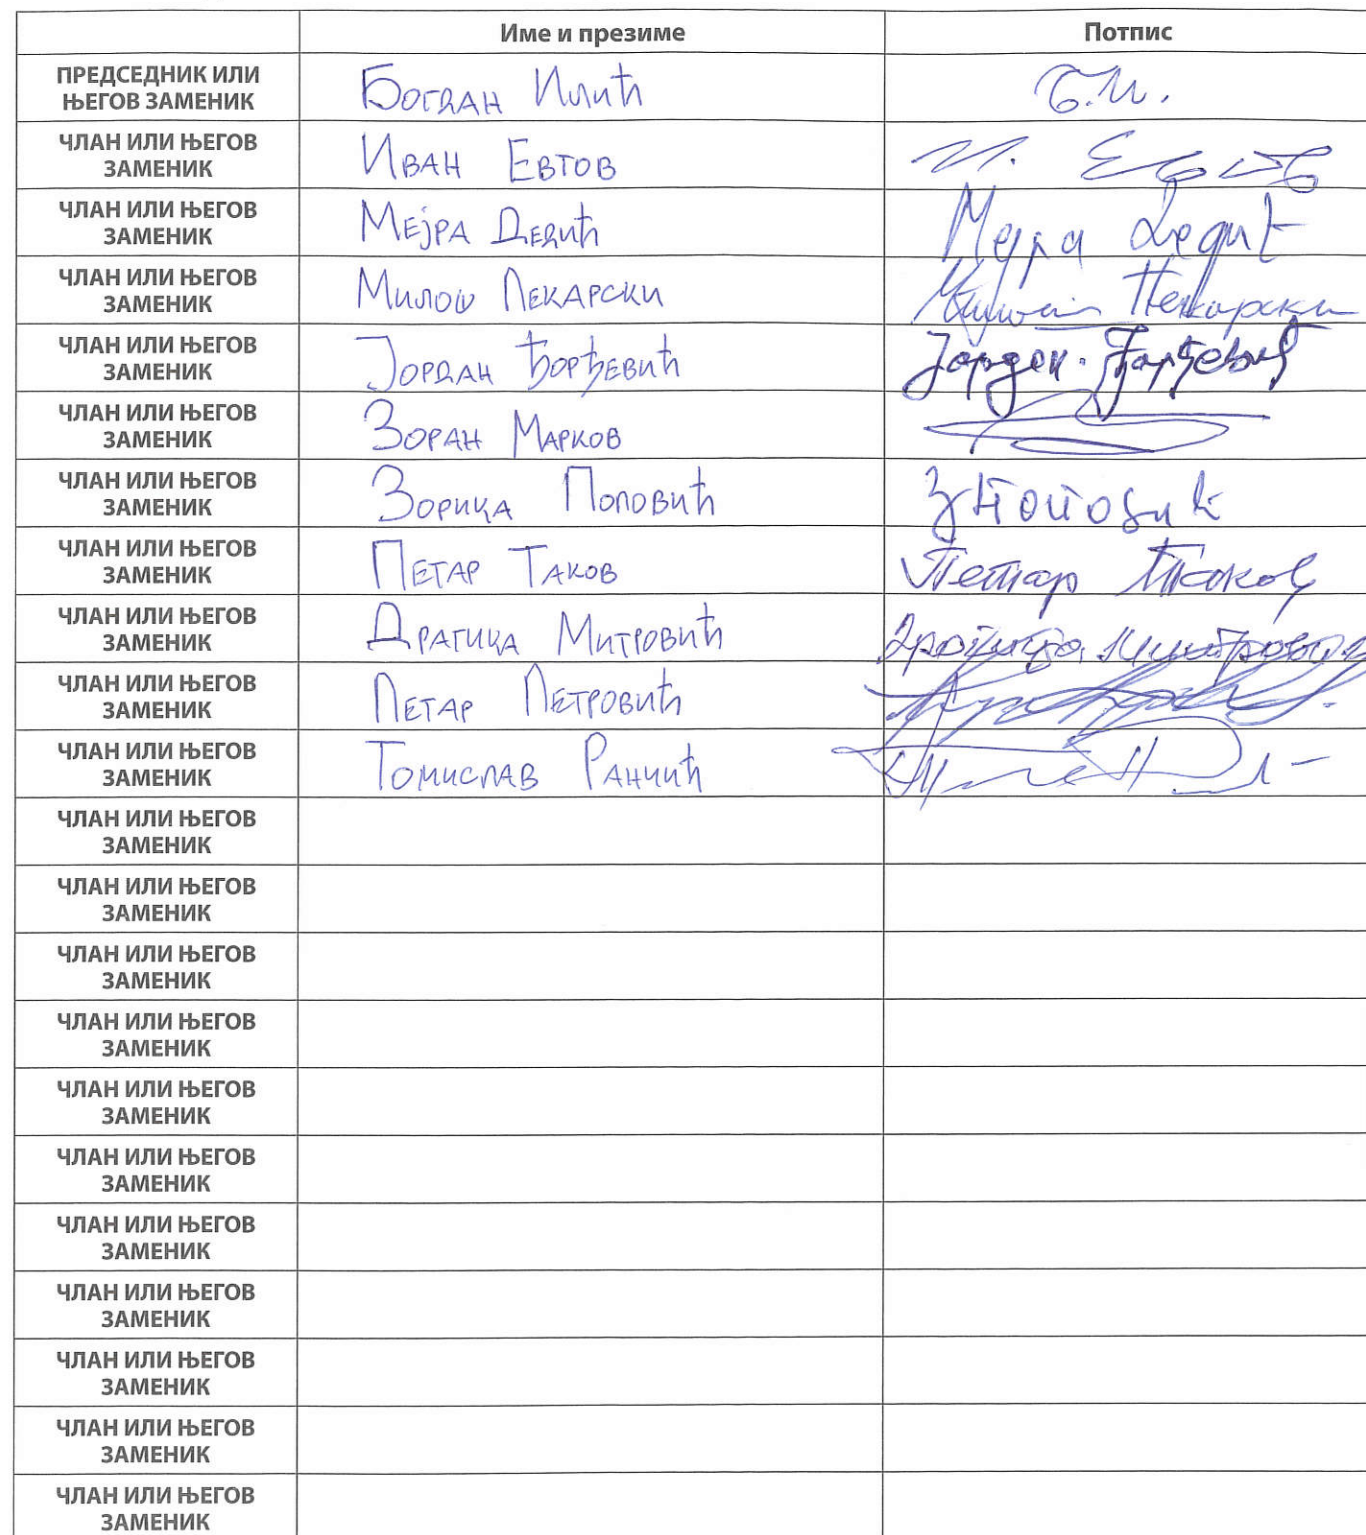 Име и презиме Потпис
ПРЕДСЕДНИК ИЛИ
ЊЕГОВ ЗАМЕНИК
Богдан Илић Б.И.
ЧЛАН ИЛИ ЊЕГОВ
ЗАМЕНИК
Иван Евтов И. Евтов
ЧЛАН ИЛИ ЊЕГОВ
ЗАМЕНИК
Мејра Дедић Мејра Дедић
ЧЛАН ИЛИ ЊЕГОВ
ЗАМЕНИК
Милош Пекарски Милош Пекарски
ЧЛАН ИЛИ ЊЕГОВ
ЗАМЕНИК
Јордан Ђорђевић Јордан Ђорђевић
ЧЛАН ИЛИ ЊЕГОВ
ЗАМЕНИК
Зоран Марков
ЧЛАН ИЛИ ЊЕГОВ
ЗАМЕНИК
Зорица Поповић З Поповић
ЧЛАН ИЛИ ЊЕГОВ
ЗАМЕНИК
Петар Таков Петар Таков
ЧЛАН ИЛИ ЊЕГОВ
ЗАМЕНИК
Драгица Митровић Драгица Митровић
ЧЛАН ИЛИ ЊЕГОВ
ЗАМЕНИК
Петар Петровић
ЧЛАН ИЛИ ЊЕГОВ
ЗАМЕНИК
Томислав Ранчић
ЧЛАН ИЛИ ЊЕГОВ
ЗАМЕНИК
ЧЛАН ИЛИ ЊЕГОВ
ЗАМЕНИК
ЧЛАН ИЛИ ЊЕГОВ
ЗАМЕНИК
ЧЛАН ИЛИ ЊЕГОВ
ЗАМЕНИК
ЧЛАН ИЛИ ЊЕГОВ
ЗАМЕНИК
ЧЛАН ИЛИ ЊЕГОВ
ЗАМЕНИК
ЧЛАН ИЛИ ЊЕГОВ
ЗАМЕНИК
ЧЛАН ИЛИ ЊЕГОВ
ЗАМЕНИК
ЧЛАН ИЛИ ЊЕГОВ
ЗАМЕНИК
ЧЛАН ИЛИ ЊЕГОВ
ЗАМЕНИК
ЧЛАН ИЛИ ЊЕГОВ
ЗАМЕНИК